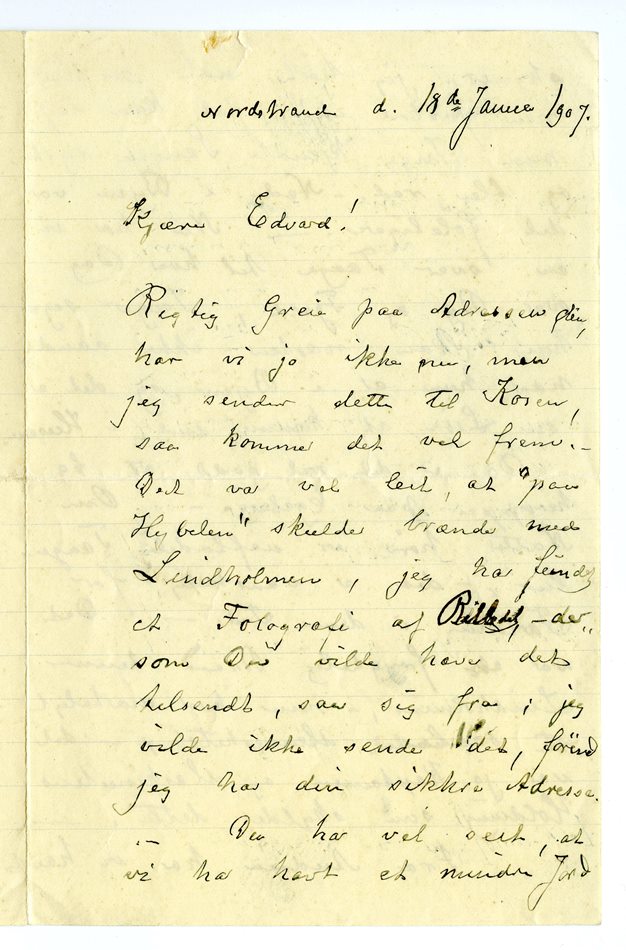 Nordstrand d. 18de Januar 1907.
Kjære Edvard!
Rigtig Greie paa Adressen din,
har vi jo ikke nu, men
jeg sender dette til Kosen,
saa kommer det vel frem. –
Det var vel leit, at "paa
Hybelen" skulde brænde med
Lindholmen, jeg har fundet
et Fotografi af Billedet, – der„
som Du vilde have det
tilsendt, saa sig fra; jeg
vilde ikke sende det, førend
jeg har din sikkre Adresse.
– Du har vel seet, at
vi har havt et mindre Jord